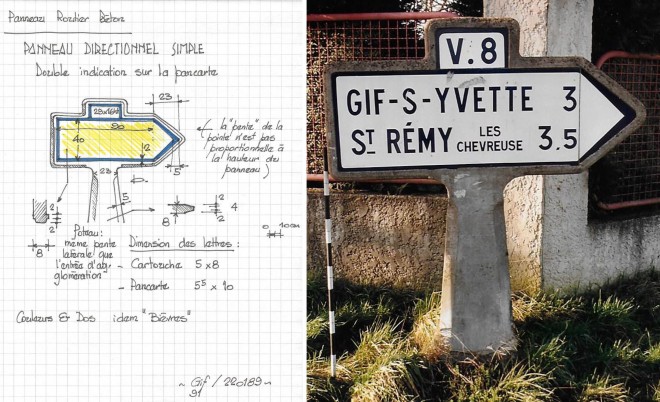 Panneau Routier Béton
PANNEAU DIRECTIONNEL SIMPLE
Double indication sur la pancarte
23
28x16h
90
40
2
5
23
la "pente" de la
pointe n'est pas
proportionnelle à
la hauteur du
panneau
5
2
2
8
8
2
2
4
0 10cm
Poteau:
même pente
latérale que
l'entrée d'ag-
glomération
Dimension des lettres :
- Cartouche 5 x 8
- Pancarte 5⁵ x 10
Couleurs et Dos idem "Bornes"
~ Gif / 220189 ~
91
V.8
GIF-S-YVETTE 3
ST RÉMY LES CHEVREUSE 3.5